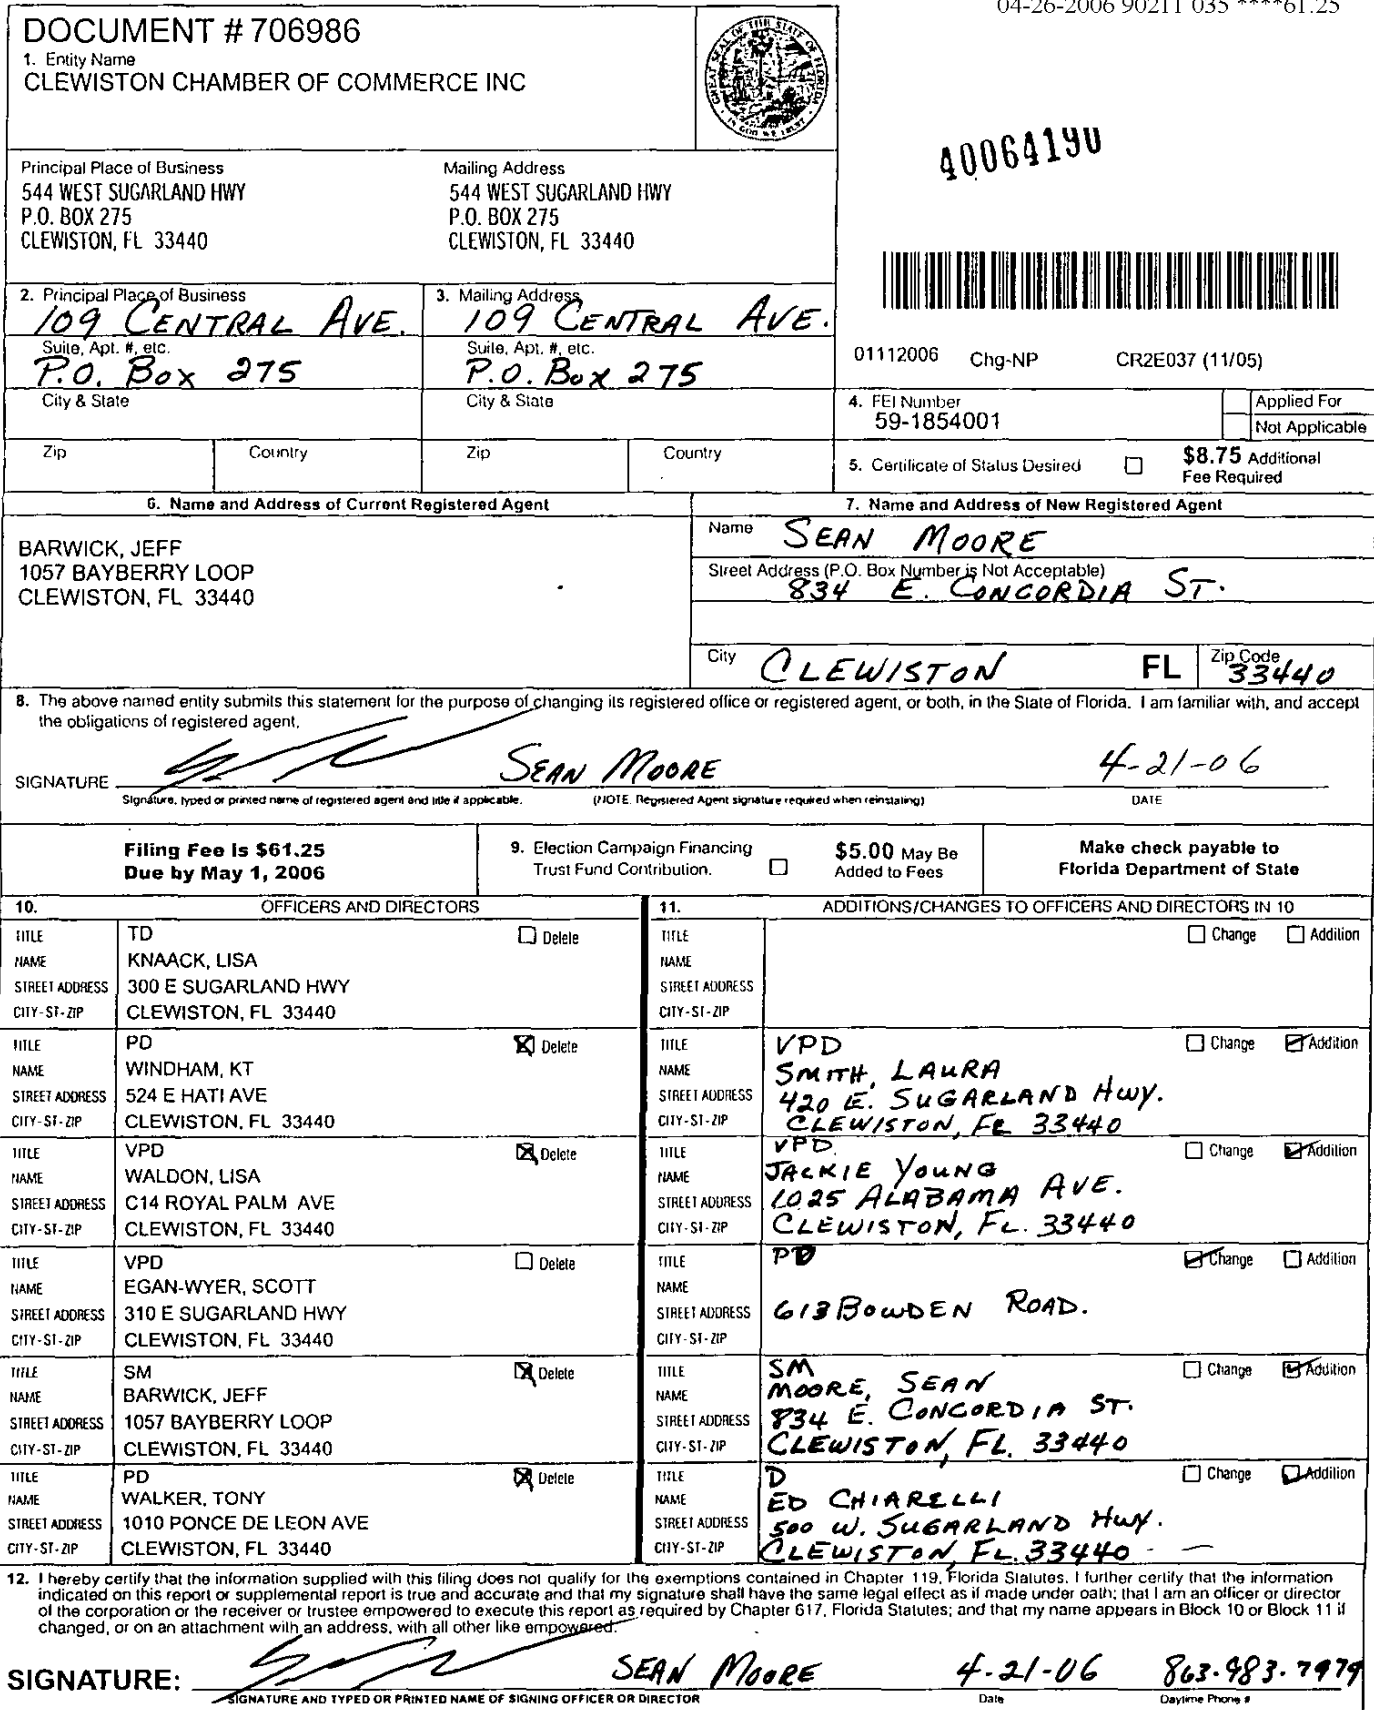 04-26-2006 90211 035 ****61.25
DOCUMENT # 706986
1. Entity Name
CLEWISTON CHAMBER OF COMMERCE INC
GREAT SEAL OF THE STATE OF FLORIDA
IN GOD WE TRUST
40064190
Principal Place of Business
544 WEST SUGARLAND HWY
P.O. BOX 275
CLEWISTON, FL 33440
Mailing Address
544 WEST SUGARLAND HWY
P.O. BOX 275
CLEWISTON, FL 33440
2. Principal Place of Business
109 CENTRAL AVE.
Suite, Apt. #, etc.
P.O. Box 275
City & State
Zip Country
3. Mailing Address
109 CENTRAL AVE.
Suite, Apt. #, etc.
P.O. Box 275
City & State
Zip Country
01112006 Chg-NP CR2E037 (11/05)
4. FEI Number
59-1854001
Applied For
Not Applicable
5. Certificate of Status Desired
$8.75 Additional
Fee Required
6. Name and Address of Current Registered Agent
BARWICK, JEFF
1057 BAYBERRY LOOP
CLEWISTON, FL 33440
7. Name and Address of New Registered Agent
Name SEAN MOORE
Street Address (P.O. Box Number is Not Acceptable)
834 E. CONCORDIA ST.
City CLEWISTON FL Zip Code 33440
8. The above named entity submits this statement for the purpose of changing its registered office or registered agent, or both, in the State of Florida. I am familiar with, and accept
the obligations of registered agent.
SIGNATURE SEAN MOORE 4-21-06
Signature, typed or printed name of registered agent and title if applicable. (NOTE. Registered Agent signature required when reinstating) DATE
Filing Fee is $61.25
Due by May 1, 2006
9. Election Campaign Financing
Trust Fund Contribution.
$5.00 May Be
Added to Fees
Make check payable to
Florida Department of State
10. OFFICERS AND DIRECTORS
11. ADDITIONS/CHANGES TO OFFICERS AND DIRECTORS IN 10
TITLE TD Delete
NAME KNAACK, LISA
STREET ADDRESS 300 E SUGARLAND HWY
CITY-ST-ZIP CLEWISTON, FL 33440
TITLE Change Addition
NAME
STREET ADDRESS
CITY-ST-ZIP
TITLE PD Delete
NAME WINDHAM, KT
STREET ADDRESS 524 E HATI AVE
CITY-ST-ZIP CLEWISTON, FL 33440
TITLE VPD Change Addition
NAME SMITH, LAURA
STREET ADDRESS 420 E. SUGARLAND Hwy.
CITY-ST-ZIP CLEWISTON, FL 33440
TITLE VPD Delete
NAME WALDON, LISA
STREET ADDRESS C14 ROYAL PALM AVE
CITY-ST-ZIP CLEWISTON, FL 33440
TITLE VPD Change Addition
NAME JACKIE YOUNG
STREET ADDRESS 1025 ALABAMA AVE.
CITY-ST-ZIP CLEWISTON, FL. 33440
TITLE VPD Delete
NAME EGAN-WYER, SCOTT
STREET ADDRESS 310 E SUGARLAND HWY
CITY-ST-ZIP CLEWISTON, FL 33440
TITLE PD Change Addition
NAME
STREET ADDRESS 613 BOWDEN ROAD.
CITY-ST-ZIP
TITLE SM Delete
NAME BARWICK, JEFF
STREET ADDRESS 1057 BAYBERRY LOOP
CITY-ST-ZIP CLEWISTON, FL 33440
TITLE SM Change Addition
NAME MOORE, SEAN
STREET ADDRESS 834 E. CONCORDIA ST.
CITY-ST-ZIP CLEWISTON, FL. 33440
TITLE PD Delete
NAME WALKER, TONY
STREET ADDRESS 1010 PONCE DE LEON AVE
CITY-ST-ZIP CLEWISTON, FL 33440
TITLE D Change Addition
NAME ED CHIARELLI
STREET ADDRESS 500 W. SUGARLAND Hwy.
CITY-ST-ZIP CLEWISTON, FL. 33440
12. I hereby certify that the information supplied with this filing does not qualify for the exemptions contained in Chapter 119, Florida Statutes. I further certify that the information
indicated on this report or supplemental report is true and accurate and that my signature shall have the same legal effect as if made under oath; that I am an officer or director
of the corporation or the receiver or trustee empowered to execute this report as required by Chapter 617, Florida Statutes; and that my name appears in Block 10 or Block 11 if
changed, or on an attachment with an address, with all other like empowered.
SIGNATURE: SEAN MOORE 4-21-06 863-983-7979
SIGNATURE AND TYPED OR PRINTED NAME OF SIGNING OFFICER OR DIRECTOR Date Daytime Phone #